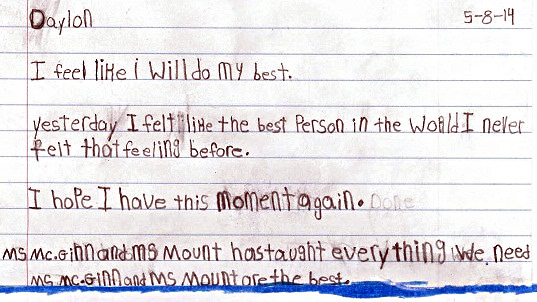 Daylon 5-8-14
I feel like i will do my best.
yesterday I felt like the best Person in the World I never
felt that feeling before.
I hope I have this moment again. Done
MS Mc.Ginn and MS Mount has taught everything we need
MS Mc.Ginn and MS Mount are the best.